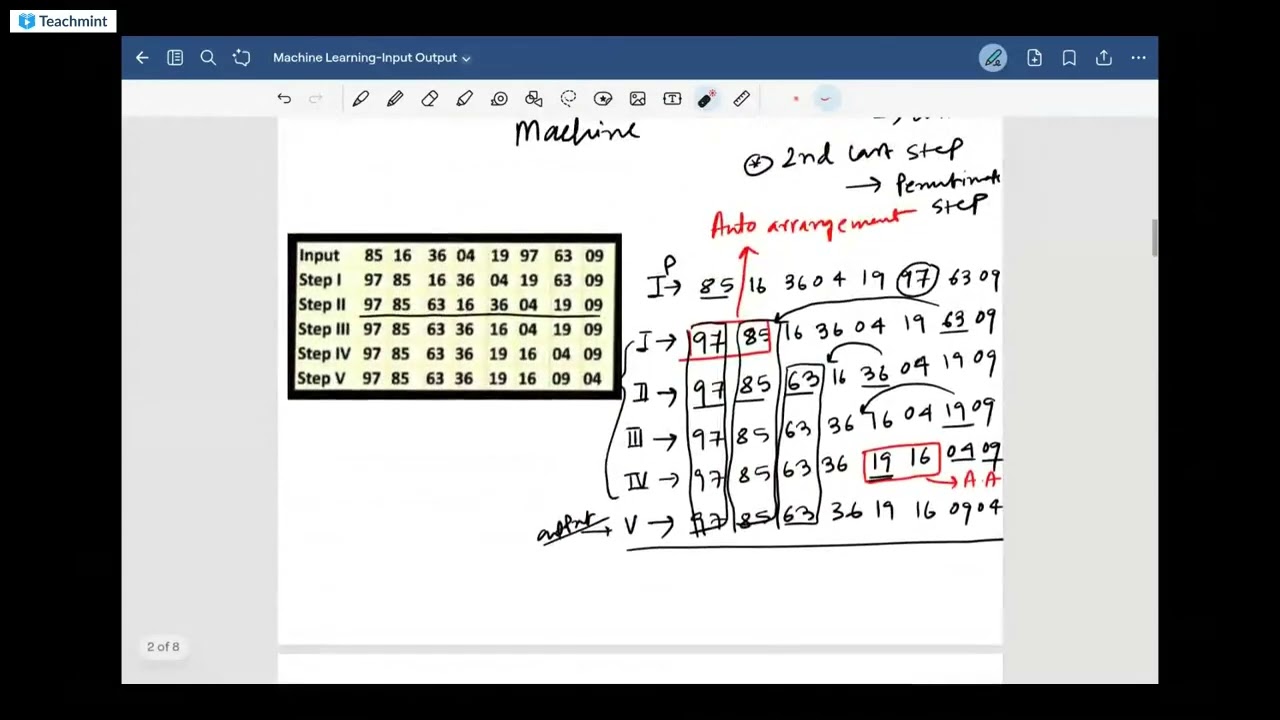 Teachmint
Machine Learning-Input Output
Machine
2nd last step
→ Penultimate
step
Auto arrangement
Input 85 16 36 04 19 97 63 09
Step I 97 85 16 36 04 19 63 09
Step II 97 85 63 16 36 04 19 09
Step III 97 85 63 36 16 04 19 09
Step IV 97 85 63 36 19 16 04 09
Step V 97 85 63 36 19 16 09 04
IP → 85 16 36 04 19 97 63 09
I → 97 85 16 36 04 19 63 09
II → 97 85 63 16 36 04 19 09
III → 97 85 63 36 16 04 19 09
IV → 97 85 63 36 19 16 04 09
→ A.A
output → V → 97 85 63 36 19 16 09 04
2 of 8